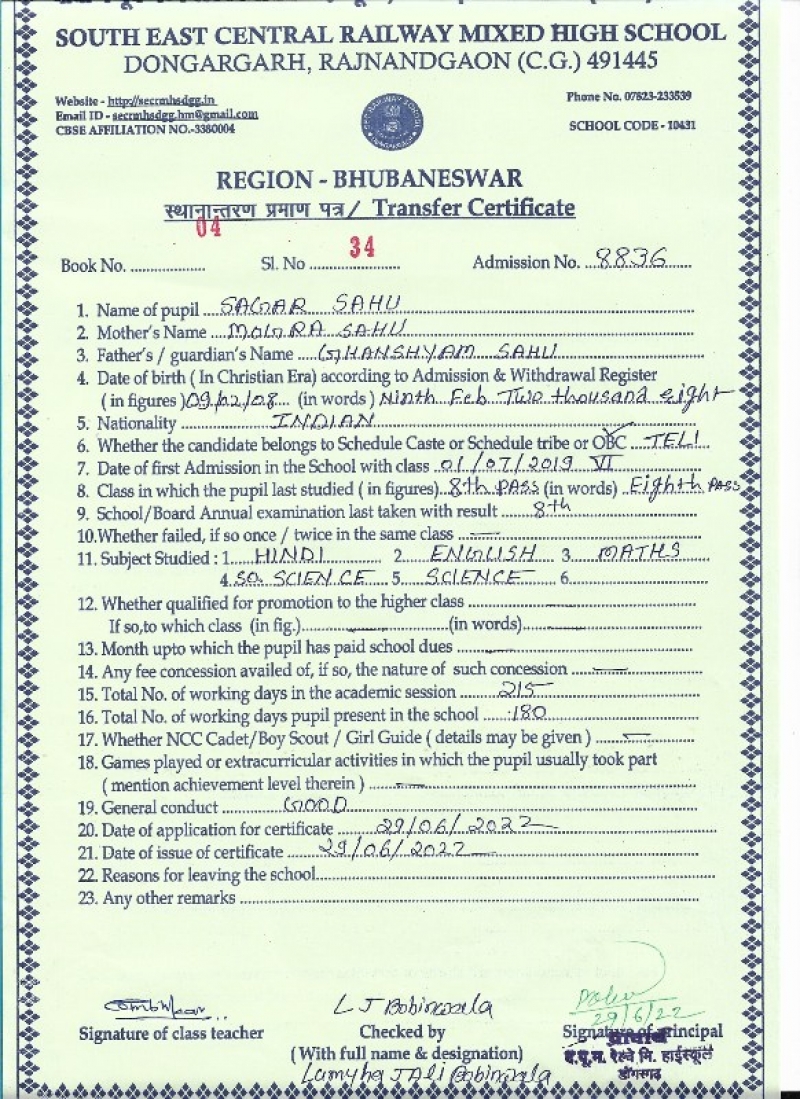 SOUTH EAST CENTRAL RAILWAY MIXED HIGH SCHOOL
DONGARGARH, RAJNANDGAON (C.G.) 491445
Website - http://secrmhsdgg.in
Phone No. 07623-233539
Email ID - secrmhsdgg.hm@gmail.com
CBSE AFFILIATION NO.-3380004
SCHOOL CODE - 10431
REGION - BHUBANESWAR
स्थानान्तरण प्रमाण पत्र / Transfer Certificate
Book No. 04 Sl. No 34 Admission No. 8836
1. Name of pupil SAGAR SAHU
2. Mother's Name MOGRA SAHU
3. Father's / guardian's Name GHANSHYAM SAHU
4. Date of birth ( In Christian Era) according to Admission & Withdrawal Register
( in figures ) 09/02/08 (in words ) Ninth Feb Two thousand eight
5. Nationality INDIAN
6. Whether the candidate belongs to Schedule Caste or Schedule tribe or OBC TELI
7. Date of first Admission in the School with class 01/07/2019 VI
8. Class in which the pupil last studied ( in figures) 8th PASS (in words) Eighth PASS
9. School/Board Annual examination last taken with result 8th
10.Whether failed, if so once / twice in the same class —
11. Subject Studied : 1. HINDI 2. ENGLISH 3. MATHS
4. SO. SCIENCE 5. SCIENCE 6.
12. Whether qualified for promotion to the higher class —
If so,to which class (in fig.) — (in words) —
13. Month upto which the pupil has paid school dues —
14. Any fee concession availed of, if so, the nature of such concession —
15. Total No. of working days in the academic session 215
16. Total No. of working days pupil present in the school 180
17. Whether NCC Cadet/Boy Scout / Girl Guide ( details may be given ) —
18. Games played or extracurricular activities in which the pupil usually took part
( mention achievement level therein ) —
19. General conduct GOOD
20. Date of application for certificate 29/06/2022
21. Date of issue of certificate 29/06/2022
22. Reasons for leaving the school
23. Any other remarks
L J Bobinwala
29/6/22
Signature of class teacher Checked by Signature of principal
प्राचार्य
(With full name & designation)
द.पू.म. रेल्वे मि. हाईस्कूल
डोंगरगढ़